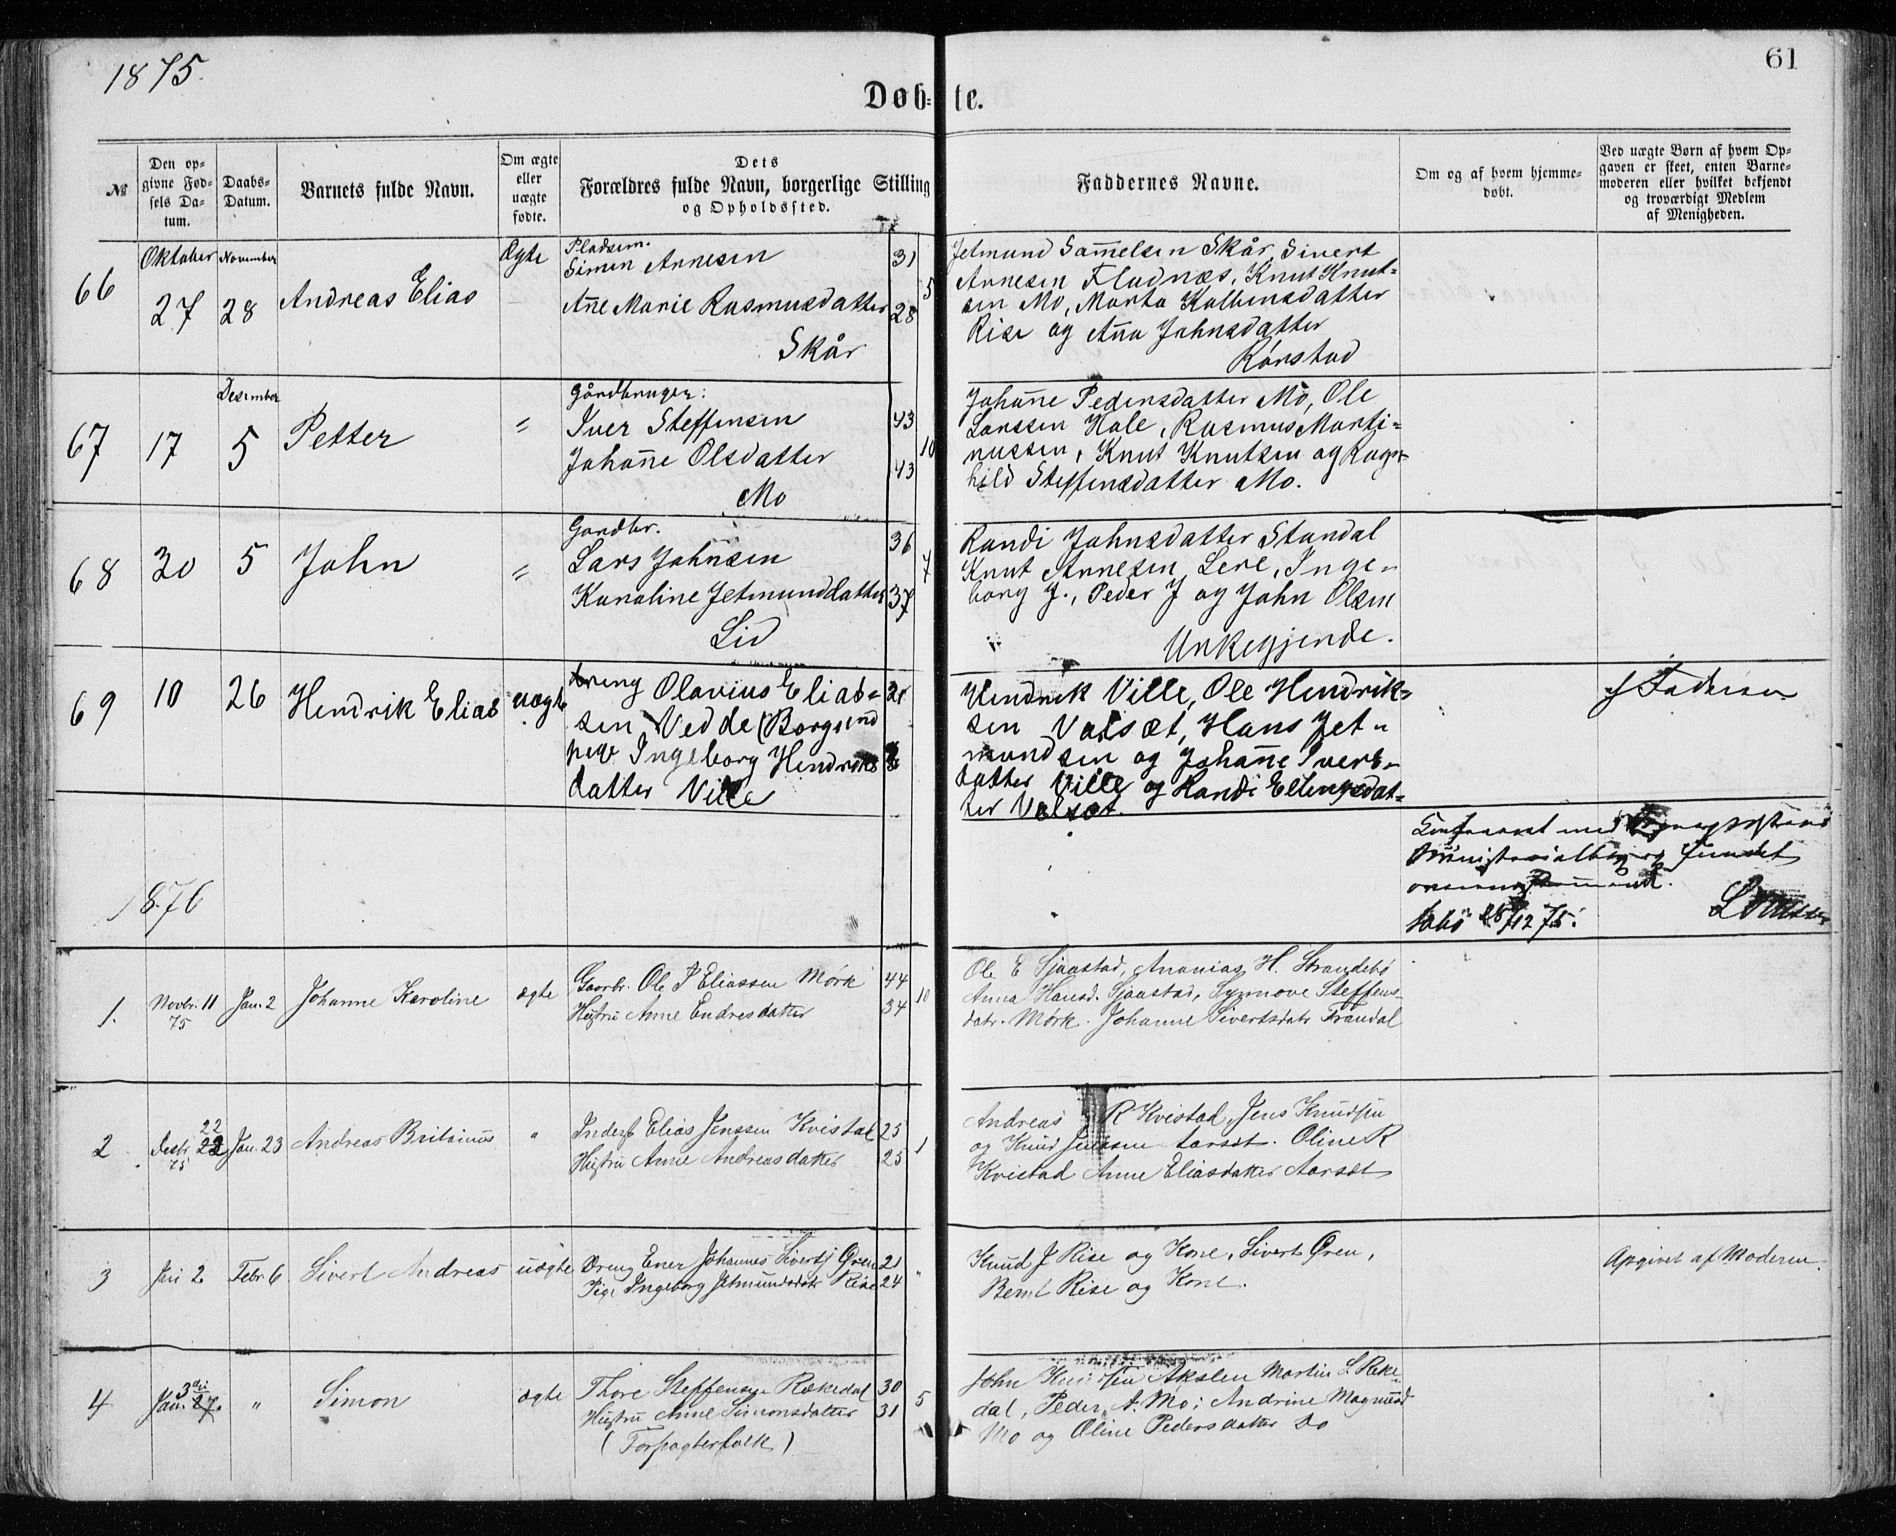 1875.
61
Døb-te.
№
Den opgivne Fødsels Datum.
Daabs-Datum.
Barnets fulde Navn.
Om ægte eller uægte fødte.
Dets Forældres fulde Navn, borgerlige Stilling og Opholdssted.
Faddernes Navne.
Om og af hvem hjemmedøbt.
Ved uægte Børn af hvem Opgaven er skeet, enten Barnemoderen eller hvilket bekjendt og troværdigt Medlem af Menigheden.
66
Oktober
27
November
28
Andreas Elias
Ægte
Pladsm.
Simen Arnesen 31
5
Añe Marie Rasmusdatter 28
Skår
Jetmund Sam̄elsen Skår, Sivert
Arnesen Fladnæs, Knut Knut=
sen Mo, Marta Kolbensdatter
Rise og Añа Johnsdatter
Rønstad
67
17
Desember
5
Petter
"
Gårdbruger:
Iver Steffensen 43
10
Johañe Olsdatter 43
Mo
Johañe Pedersdatter Mo, Ole
Larssen Hole, Rasmus Marti=
nussen, Knut Knutsen og Ragn-
hild Steffensdatter Mo.
68
30
5
John
"
Gardbr.
Lars Johnsen 36
7
Karoline Jetmunddatter 37
Lid
Randi Johnsdatter Standal
Knut Arnesen Lere, Inge-
borg J., Peder J og John Olsen
Unkegjende.
69
10
26
Hendrik Elias
uægte
dreng Olavius Elias=
sen Vedde (Borgund
pige Ingeborg Hendriks
datter Ville
Hendrik Ville, Ole Hendrik=
sen Valsæt, Hans Jet=
mundsen og Johañe Ivers-
datter Ville og Randi Ellingsdat=
ter Valsæt.
af Faderen
1876
Ministerialbog og fundet
12 75.
1.
Novbr. 11
75
Jan. 2
Johanne Karoline
ægte
Gaarbr. Ole P Eliassen Mørk 44
10
Hustru Anne Endresdatter 34
Ole E Sjaastad, Ananias H. Strandebø
Anna Hansd. Sjaastad, Synnove Steffens-
datr. Mørk. Johanne Sivertsdatr Trandal
2
Desbr. 22
22
75
Jan. 23
Andreas Britanus
"
Inderst Elias Jenssen Kvistad 25
1
Hustru Anne Andreasdatter 25
Andreas R Kvistad, Jens Knudsen
og Knud Jenssen Aarsæt. Oline R
Kvistad Anne Eliasdatter Aarsæt
3
Jan 2
Febr. 6
Sivert Andreas
uægte
Dreng Ener Johannes Sivertj Øren 21
"
Pige Ingeborg Jetmundsdatr Rise 24
Knud J Rise og Kone, Sivert Øren,
Bernt Rise og Kone.
Apgivet af Moderen.
4
3die
Jan. 27.
"
Simon
ægte
Thore Steffensen Rækedal 30
5
Hustru Anne Simonsdatter 31
(Forpagterfolk)
John Knudsen Akslen Martin S. Ræke-
dal, Peder A. Mo; Andrine Magnusd
Mo og Oline Pedersdatter Do